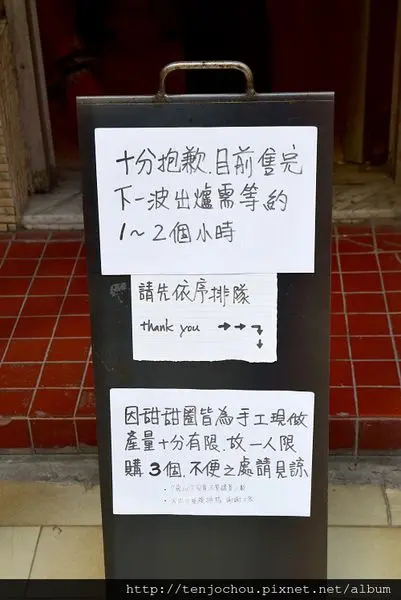 十分抱歉.目前售完
下一波出爐需等.約
1～2個小時
請先依序排隊
thank you →→↴
↓
因甜甜圈皆為手工現做
產量十分有限.故一人限
購3個.不便之處請見諒
http://tenjochou.pixnet.net/album